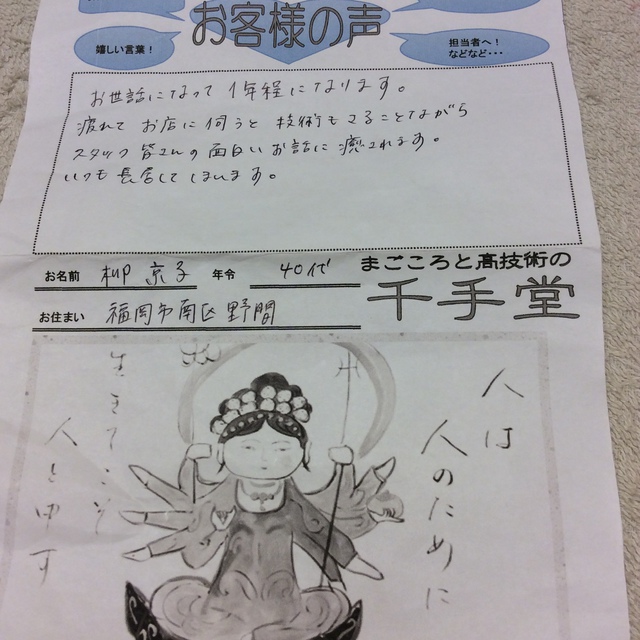 お客様の声
嬉しい言葉！
担当者へ！
などなど・・・
お世話になって1年程になります。
疲れて お店に伺うと 技術もさることながら
スタッフ皆さんの面白いお話に癒されます。
いつも長居してしまいます。
お名前 柳 京子 年令 40代
お住まい 福岡市南区野間
まごころと高技術の
千手堂
人は
人のために
生きてこそ
人と申す